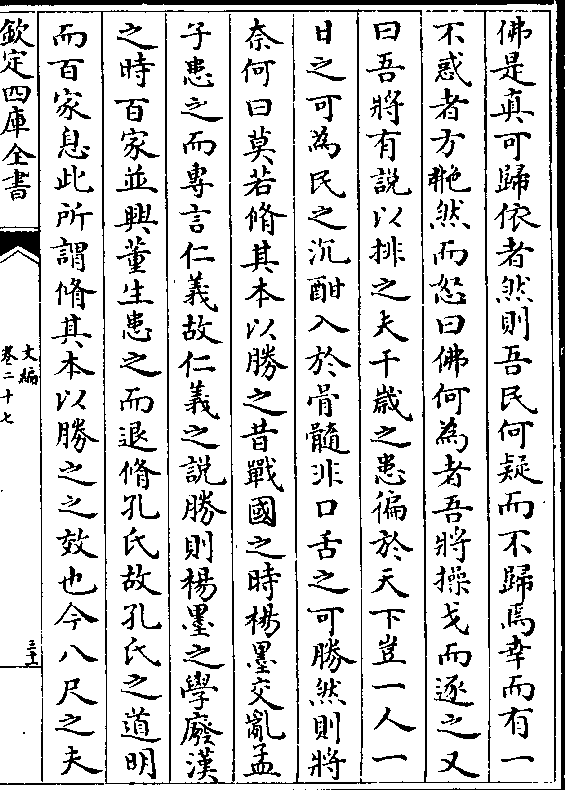 佛是真可歸依者然則吾民何疑而不歸焉幸而有一
不惑者方艴然而怒曰佛何為者吾將操戈而逐之又
曰吾將有説以排之夫千歲之患徧於天下豈一人一
日之可為民之沉酣入於骨髓非口舌之可勝然則將
奈何曰莫若脩其本以勝之昔戰國之時楊墨交亂孟
子患之而專言仁義故仁義之説勝則楊墨之學廢漢
之時百家並興董生患之而退脩孔氏故孔氏之道明
而百家息此所謂脩其本以勝之之效也今八尺之夫
欽定四庫全書
文編
卷二十七